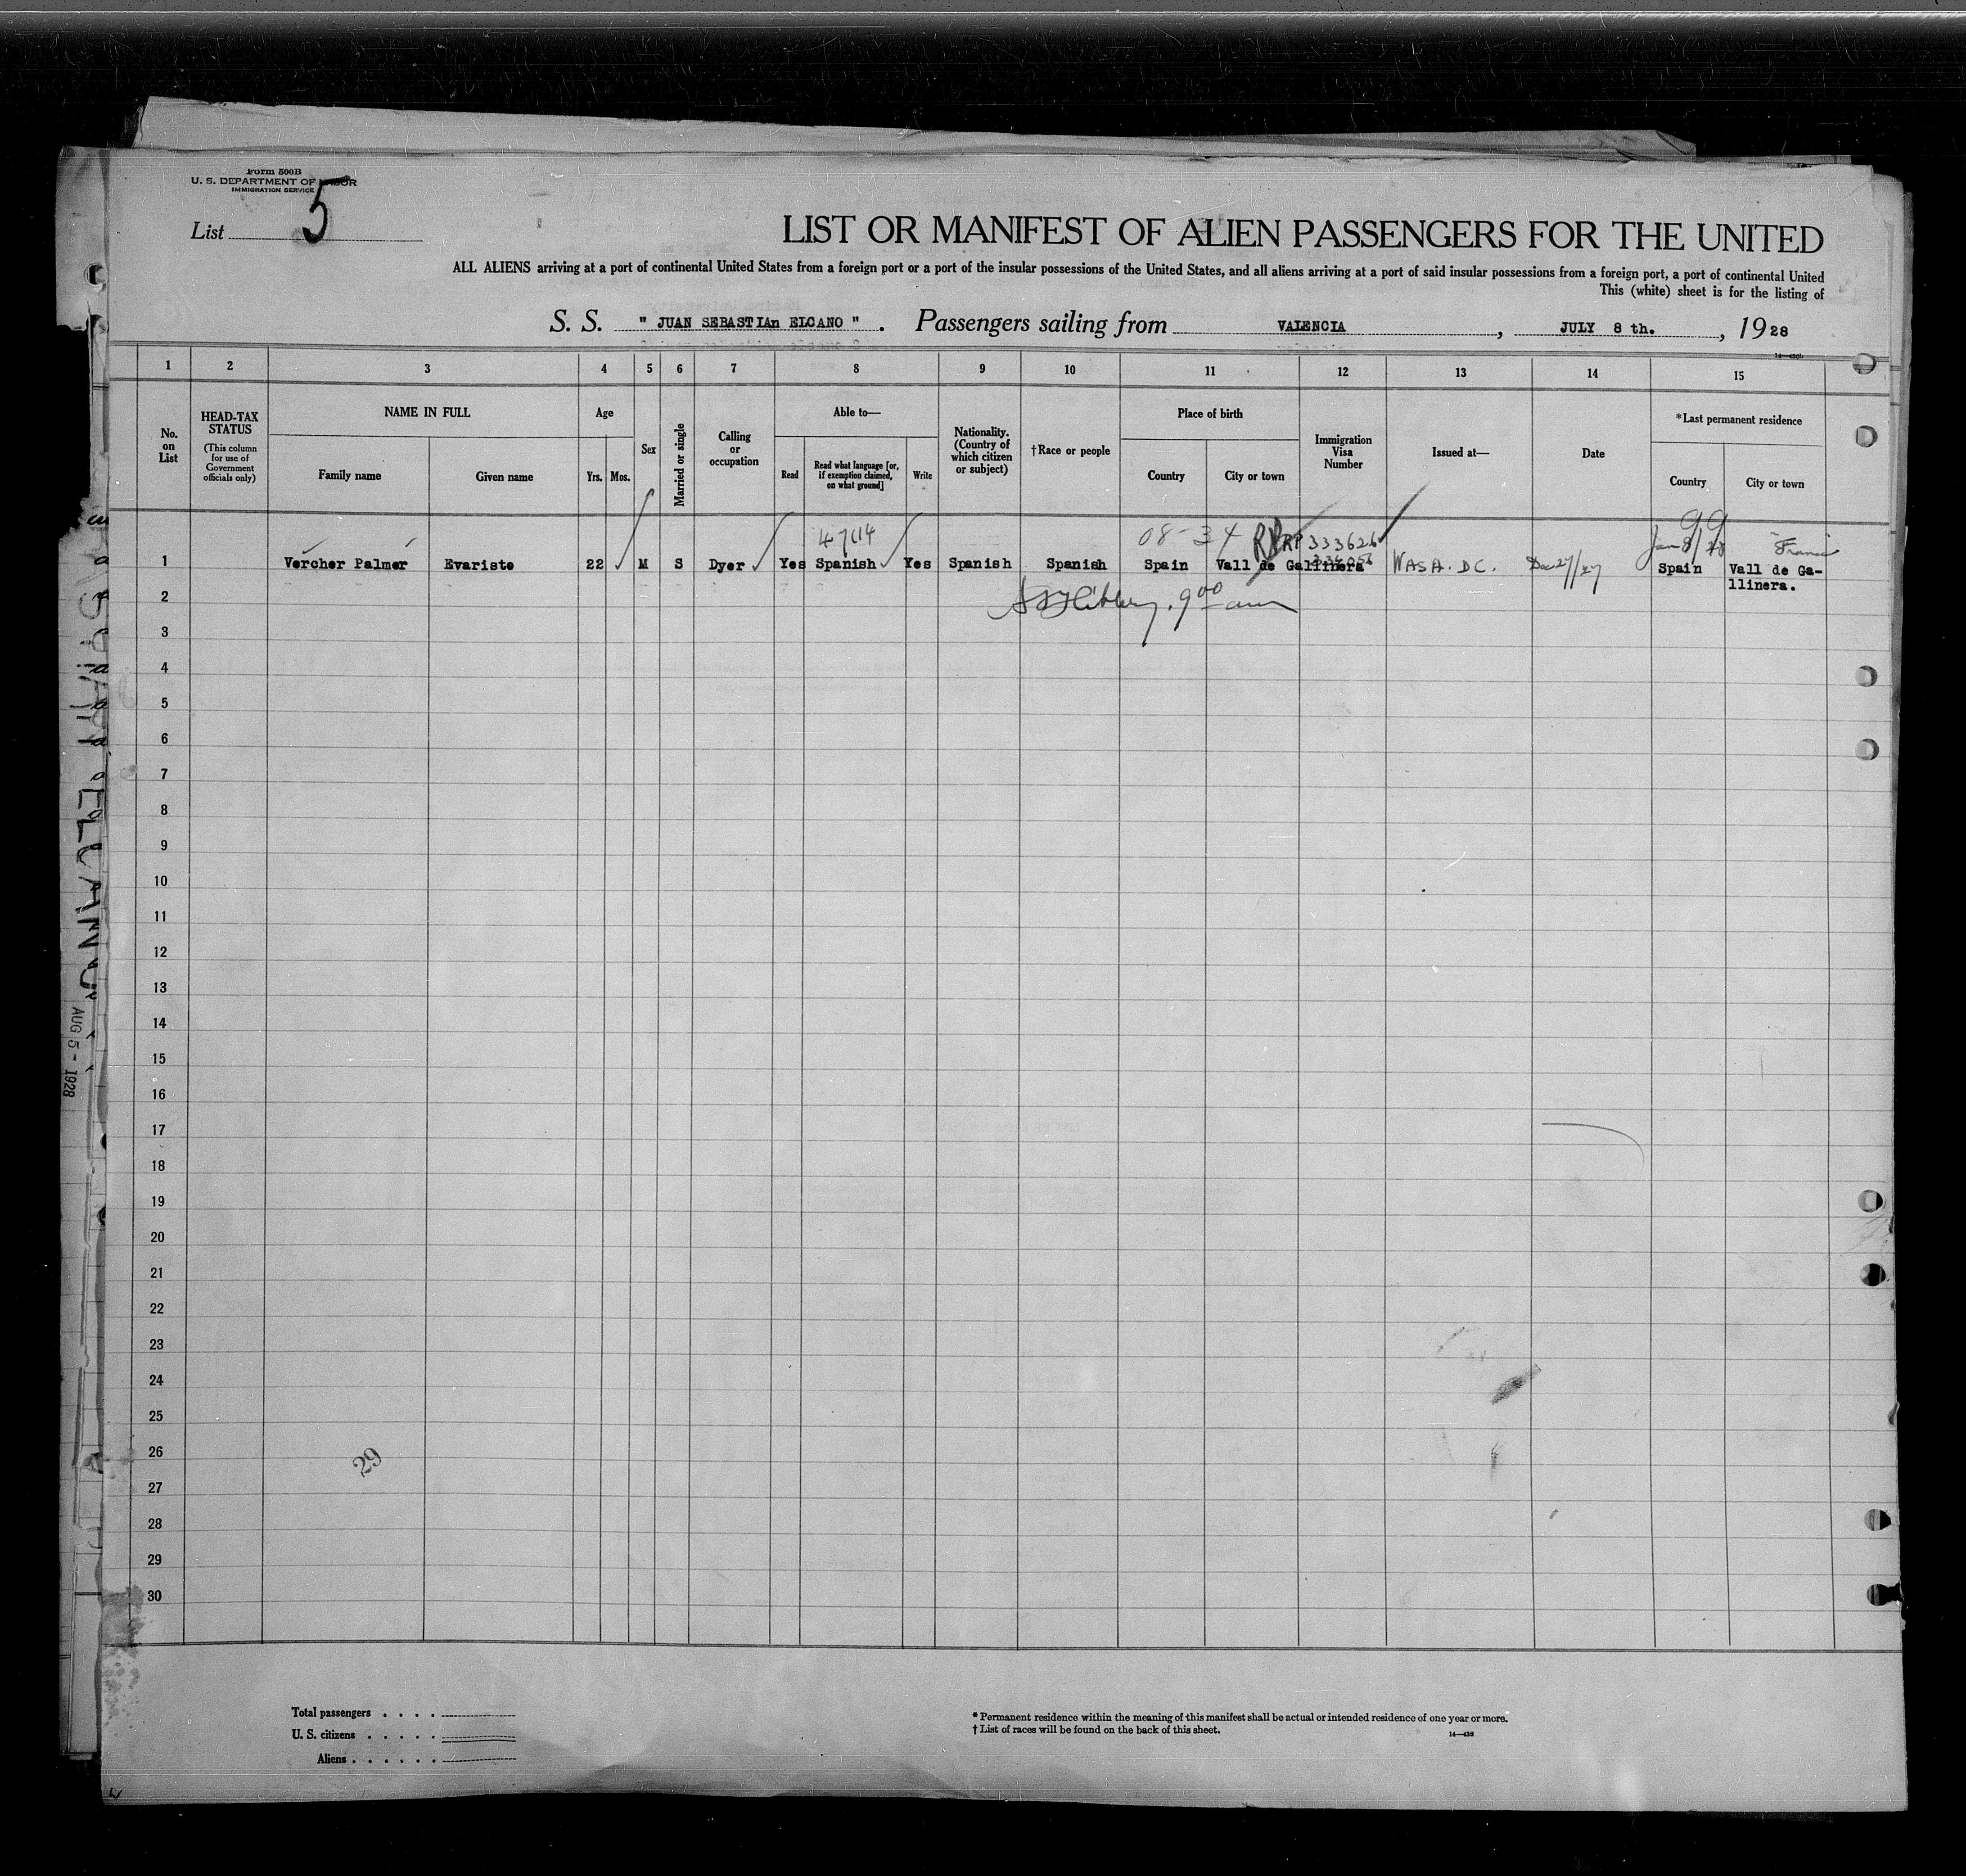 Form 500B
U. S. DEPARTMENT OF LABOR
IMMIGRATION SERVICE
List 5
LIST OR MANIFEST OF ALIEN PASSENGERS FOR THE UNITED
ALL ALIENS arriving at a port of continental United States from a foreign port or a port of the insular possessions of the United States, and all aliens arriving at a port of said insular possessions from a foreign port, a port of continental United
This (white) sheet is for the listing of
S. S. " JUAN SEBASTIAn ELCANO " . Passengers sailing from VALENCIA , JULY 8 th. , 1928
1 2 3 4 5 6 7 8 9 10 11 12 13 14 15
No. on List
HEAD-TAX STATUS
(This column for use of Government officials only)
NAME IN FULL
Family name
Given name
Age
Yrs. Mos.
Sex
Married or single
Calling or occupation
Able to—
Read
Read what language [or, if exemption claimed, on what ground]
Write
Nationality. (Country of which citizen or subject)
†Race or people
Place of birth
Country
City or town
Immigration Visa Number
Issued at—
Date
*Last permanent residence
Country
City or town
99
08-34 RP 333626
Jan 8/28
1 Vercher Palmer Evaristo 22 M S Dyer Yes Spanish Yes Spanish Spanish Spain Vall de Gallinera WASH. D.C. Dec 27/27 Spain Vall de Ga-
llinera.
2 9 00 am
3
4
5
6
7
8
9
10
11
12
13
14
15
16
17
18
19
20
21
22
23
24
25
26
29
27
28
29
30
AUG 5 - 1928
Total passengers . . . .
U. S. citizens . . . . .
Aliens . . . . . .
* Permanent residence within the meaning of this manifest shall be actual or intended residence of one year or more.
† List of races will be found on the back of this sheet.